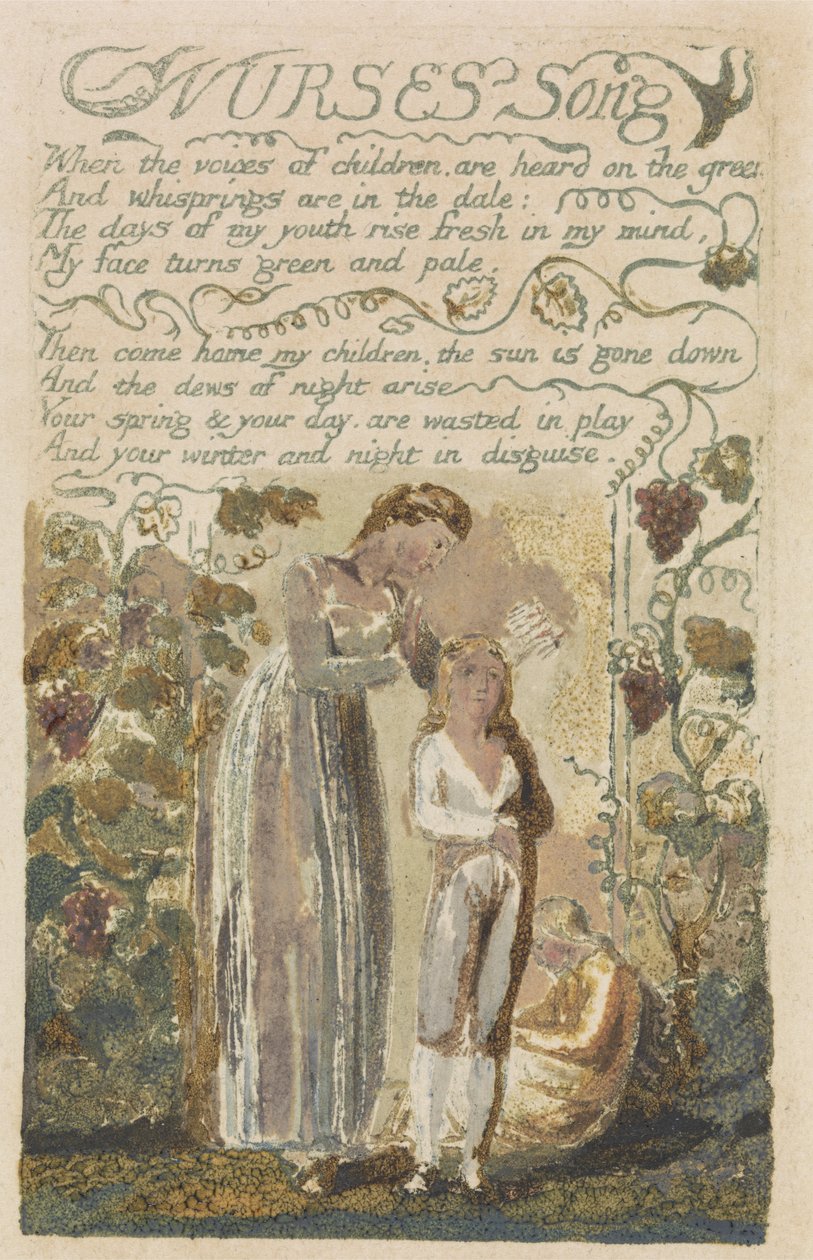 NURSES Song
When the voices of children. are heard on the green
And whisprings are in the dale:
The days of my youth rise fresh in my mind,
My face turns green and pale.
Then come home my children. the sun is gone down
And the dews of night arise
Your spring & your day. are wasted in play
And your winter and night in disguise.